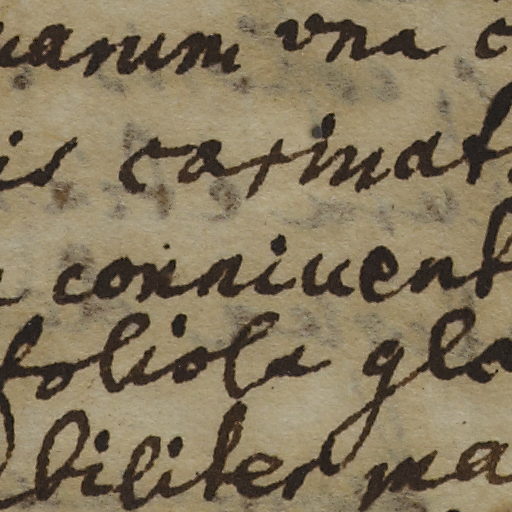 uarum vna c
is carinat
conniuent
foliola gla
biliter ma